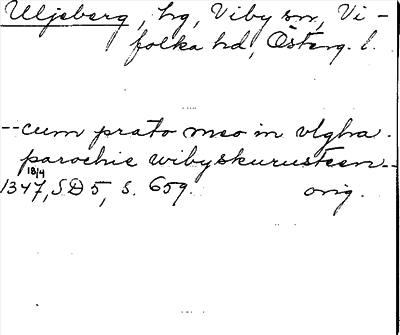 Uljeberg, hg, Viby sn, Vi-
folka hd, Österg. l.
--cum prato meo in vlghra.
parochie wibyskurusteen--
18/4
1347, SD 5, s. 659. orig.